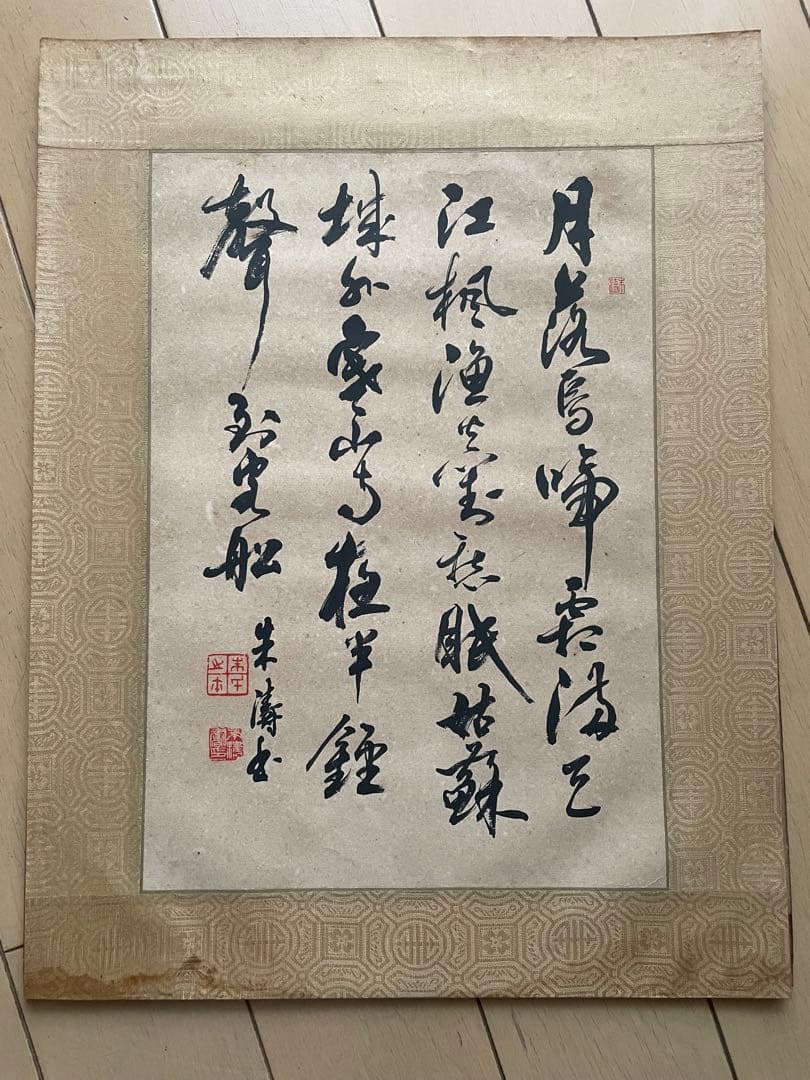 月落烏啼霜滿天
江楓漁火對愁眠姑蘇
城外寒山寺夜半鐘
聲到客船
朱濤書